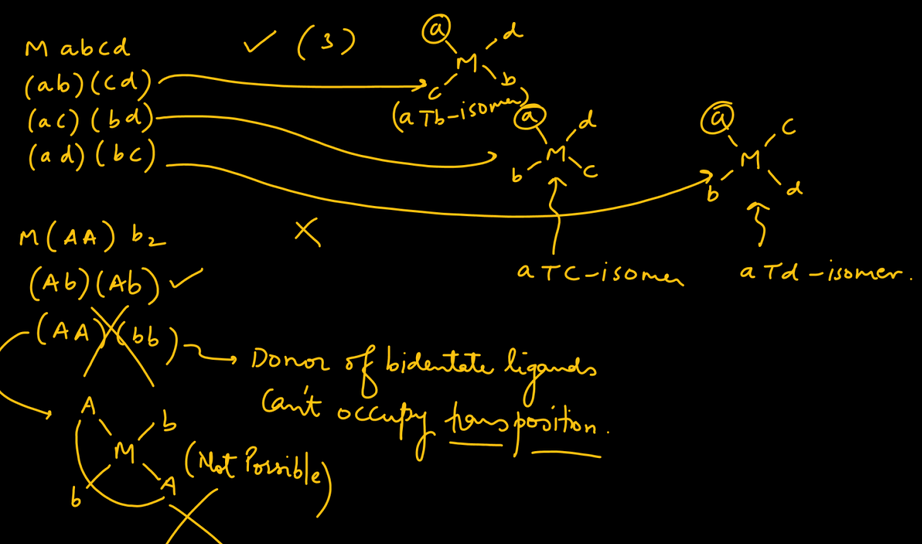 M abcd
✓ (3)
(ab)(cd)
(ac)(bd)
(ad)(bc)
a d
M
c b
(aTb-isomer)
a d
M
b c
a c
M
b d
aTC-isomer
aTd-isomer.
M(AA) b2
X
(Ab)(Ab) ✓
(AA)(bb)
Donor of bidentate ligands
Can't occupy trans position.
A b
M
b A
(Not Possible)